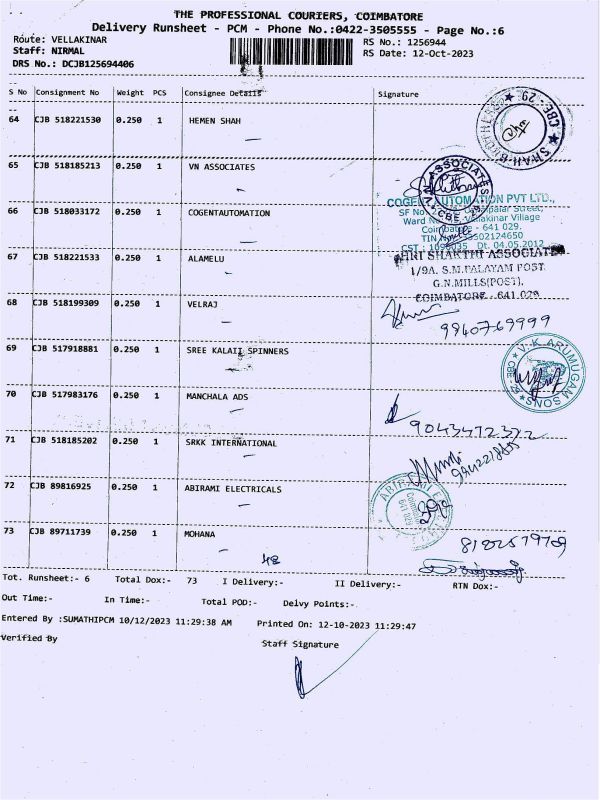 THE PROFESSIONAL COURIERS, COIMBATORE
Delivery Runsheet - PCM - Phone No.:0422-3505555 - Page No.:6
Route: VELLAKINAR
RS No.: 1256944
Staff: NIRMAL
RS Date: 12-Oct-2023
DRS No.: DCJB125694406
S No Consignment No Weight PCS Consignee Details Signature
64 CJB 518221530 0.250 1 HEMEN SHAH
65 CJB 518185213 0.250 1 VN ASSOCIATES
ASSOCIATES
COGENT AUTOMATION PVT LTD.,
66 CJB 518033172 0.250 1 COGENTAUTOMATION
Coimbatore - 641 029.
Dt. 04.05.2012
67 CJB 518221533 0.250 1 ALAMELU
SHRI SHAKTHI ASSOCIATES
1/9A, S.M.PALAYAM POST
G.N.MILLS(POST),
COIMBATORE - 641 029
68 CJB 518199309 0.250 1 VELRAJ
9940769999
69 CJB 517918881 0.250 1 SREE KALAII SPINNERS
V.K ARUMUGAM SONS
70 CJB 517983176 0.250 1 MANCHALA ADS
9043472322
71 CJB 518185202 0.250 1 SRKK INTERNATIONAL
72 CJB 89816925 0.250 1 ABIRAMI ELECTRICALS
73 CJB 89711739 0.250 1 MOHANA
48
Tot. Runsheet:- 6 Total Dox:- 73 I Delivery:- II Delivery:- RTN Dox:-
Out Time:- In Time:- Total POD:- Delvy Points:-
Entered By :SUMATHIPCM 10/12/2023 11:29:38 AM Printed On: 12-10-2023 11:29:47
Verified By Staff Signature